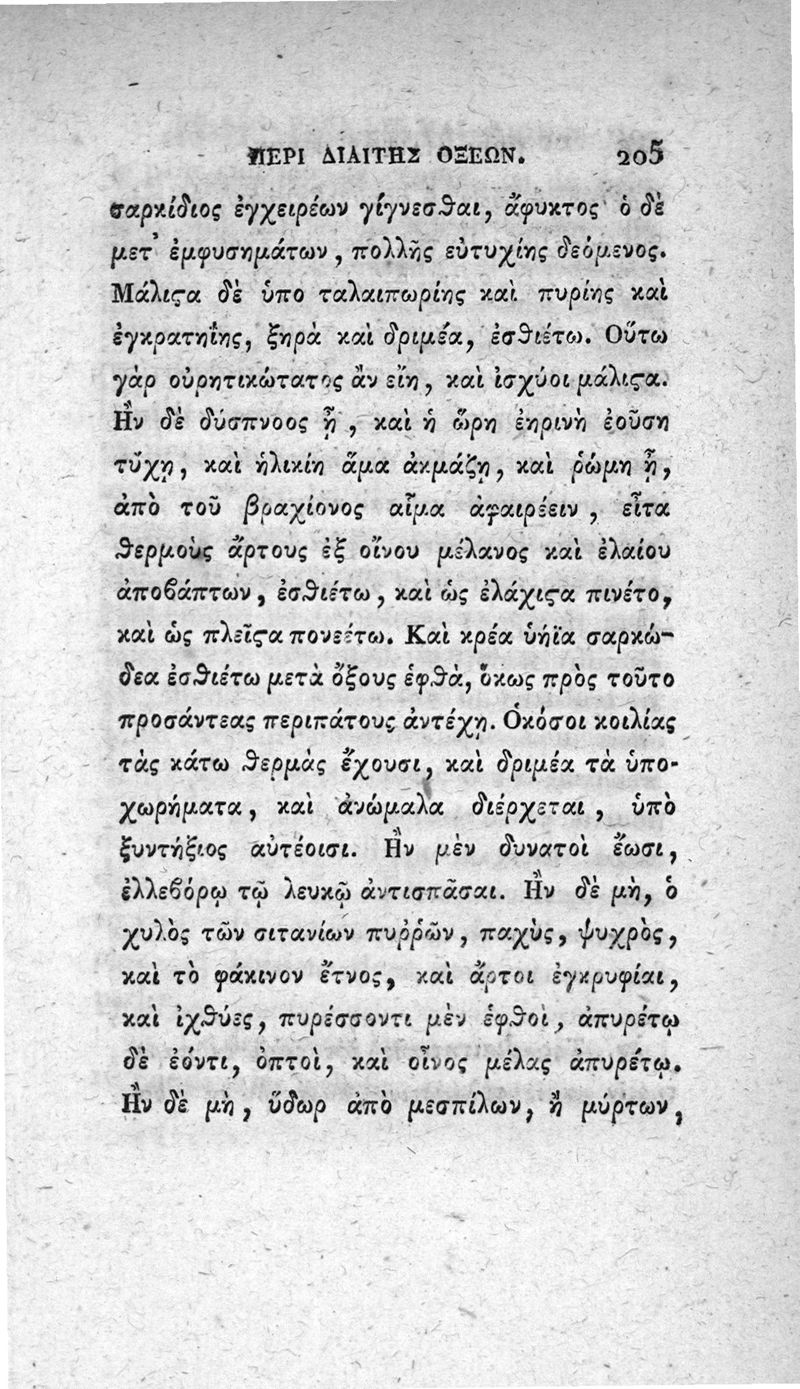 ΠΕΡΙ ΔΙΑΙΤΗΣ ΟΞΕΩΝ. 205
σαρκίδιος ἐγχειρέων γίγνεσθαι, ἄφυκτος· ὁ δὲ
μετ᾽ ἐμφυσημάτων, πολλῆς εὐτυχίης δεόμενος.
Μάλιϛα δὲ ὑπο ταλαιπωρίης καὶ πυρίης καὶ
ἐγκρατηΐης, ξηρὰ καὶ δριμέα, ἐσθιέτω. Οὕτω
γὰρ οὐρητικώτατος ἂν εἴη, καὶ ἰσχύοι μάλιϛα.
Ἢν δὲ δύσπνοος ᾖ, καὶ ἡ ὥρη ἐηρινὴ ἐοῦση
τύχῃ, καὶ ἡλικίη ἅμα ἀκμάζῃ, καὶ ῥώμη ᾖ,
ἀπὸ τοῦ βραχίονος αἷμα ἀφαιρέειν, εἶτα
θερμοὺς ἄρτους ἐξ οἴνου μέλανος καὶ ἐλαίου
ἀποβάπτων, ἐσθιέτω, καὶ ὡς ἐλάχιϛα πινέτο,
καὶ ὡς πλεῖϛα πονεέτω. Καὶ κρέα ὑήϊα σαρκώ-
δεα ἐσθιέτω μετὰ ὄξους ἑφθὰ, ὅκως πρὸς τοῦτο
προσάντεας περιπάτους ἀντέχῃ. Ὁκόσοι κοιλίας
τὰς κάτω θερμὰς ἔχουσι, καὶ δριμέα τὰ ὑπο-
χωρήματα, καὶ ἀνώμαλα διέρχεται, ὑπὸ
ξυντήξιος αὐτέοισι. Ἢν μὲν δυνατοὶ ἔωσι,
ἐλλεβόρῳ τῷ λευκῷ ἀντισπᾶσαι. Ἢν δὲ μὴ, ὁ
χυλὸς τῶν σιτανίων πυῤῥῶν, παχὺς, ψυχρὸς,
καὶ τὸ φάκινον ἔτνος, καὶ ἄρτοι ἐγκρυφίαι,
καὶ ἰχθύες, πυρέσσοντι μὲν ἑφθοὶ, ἀπυρέτῳ
δὲ ἐόντι, ὀπτοὶ, καὶ οἶνος μέλας ἀπυρέτῳ.
Ἢν δὲ μὴ, ὕδωρ ἀπὸ μεσπίλων, ἢ μύρτων,